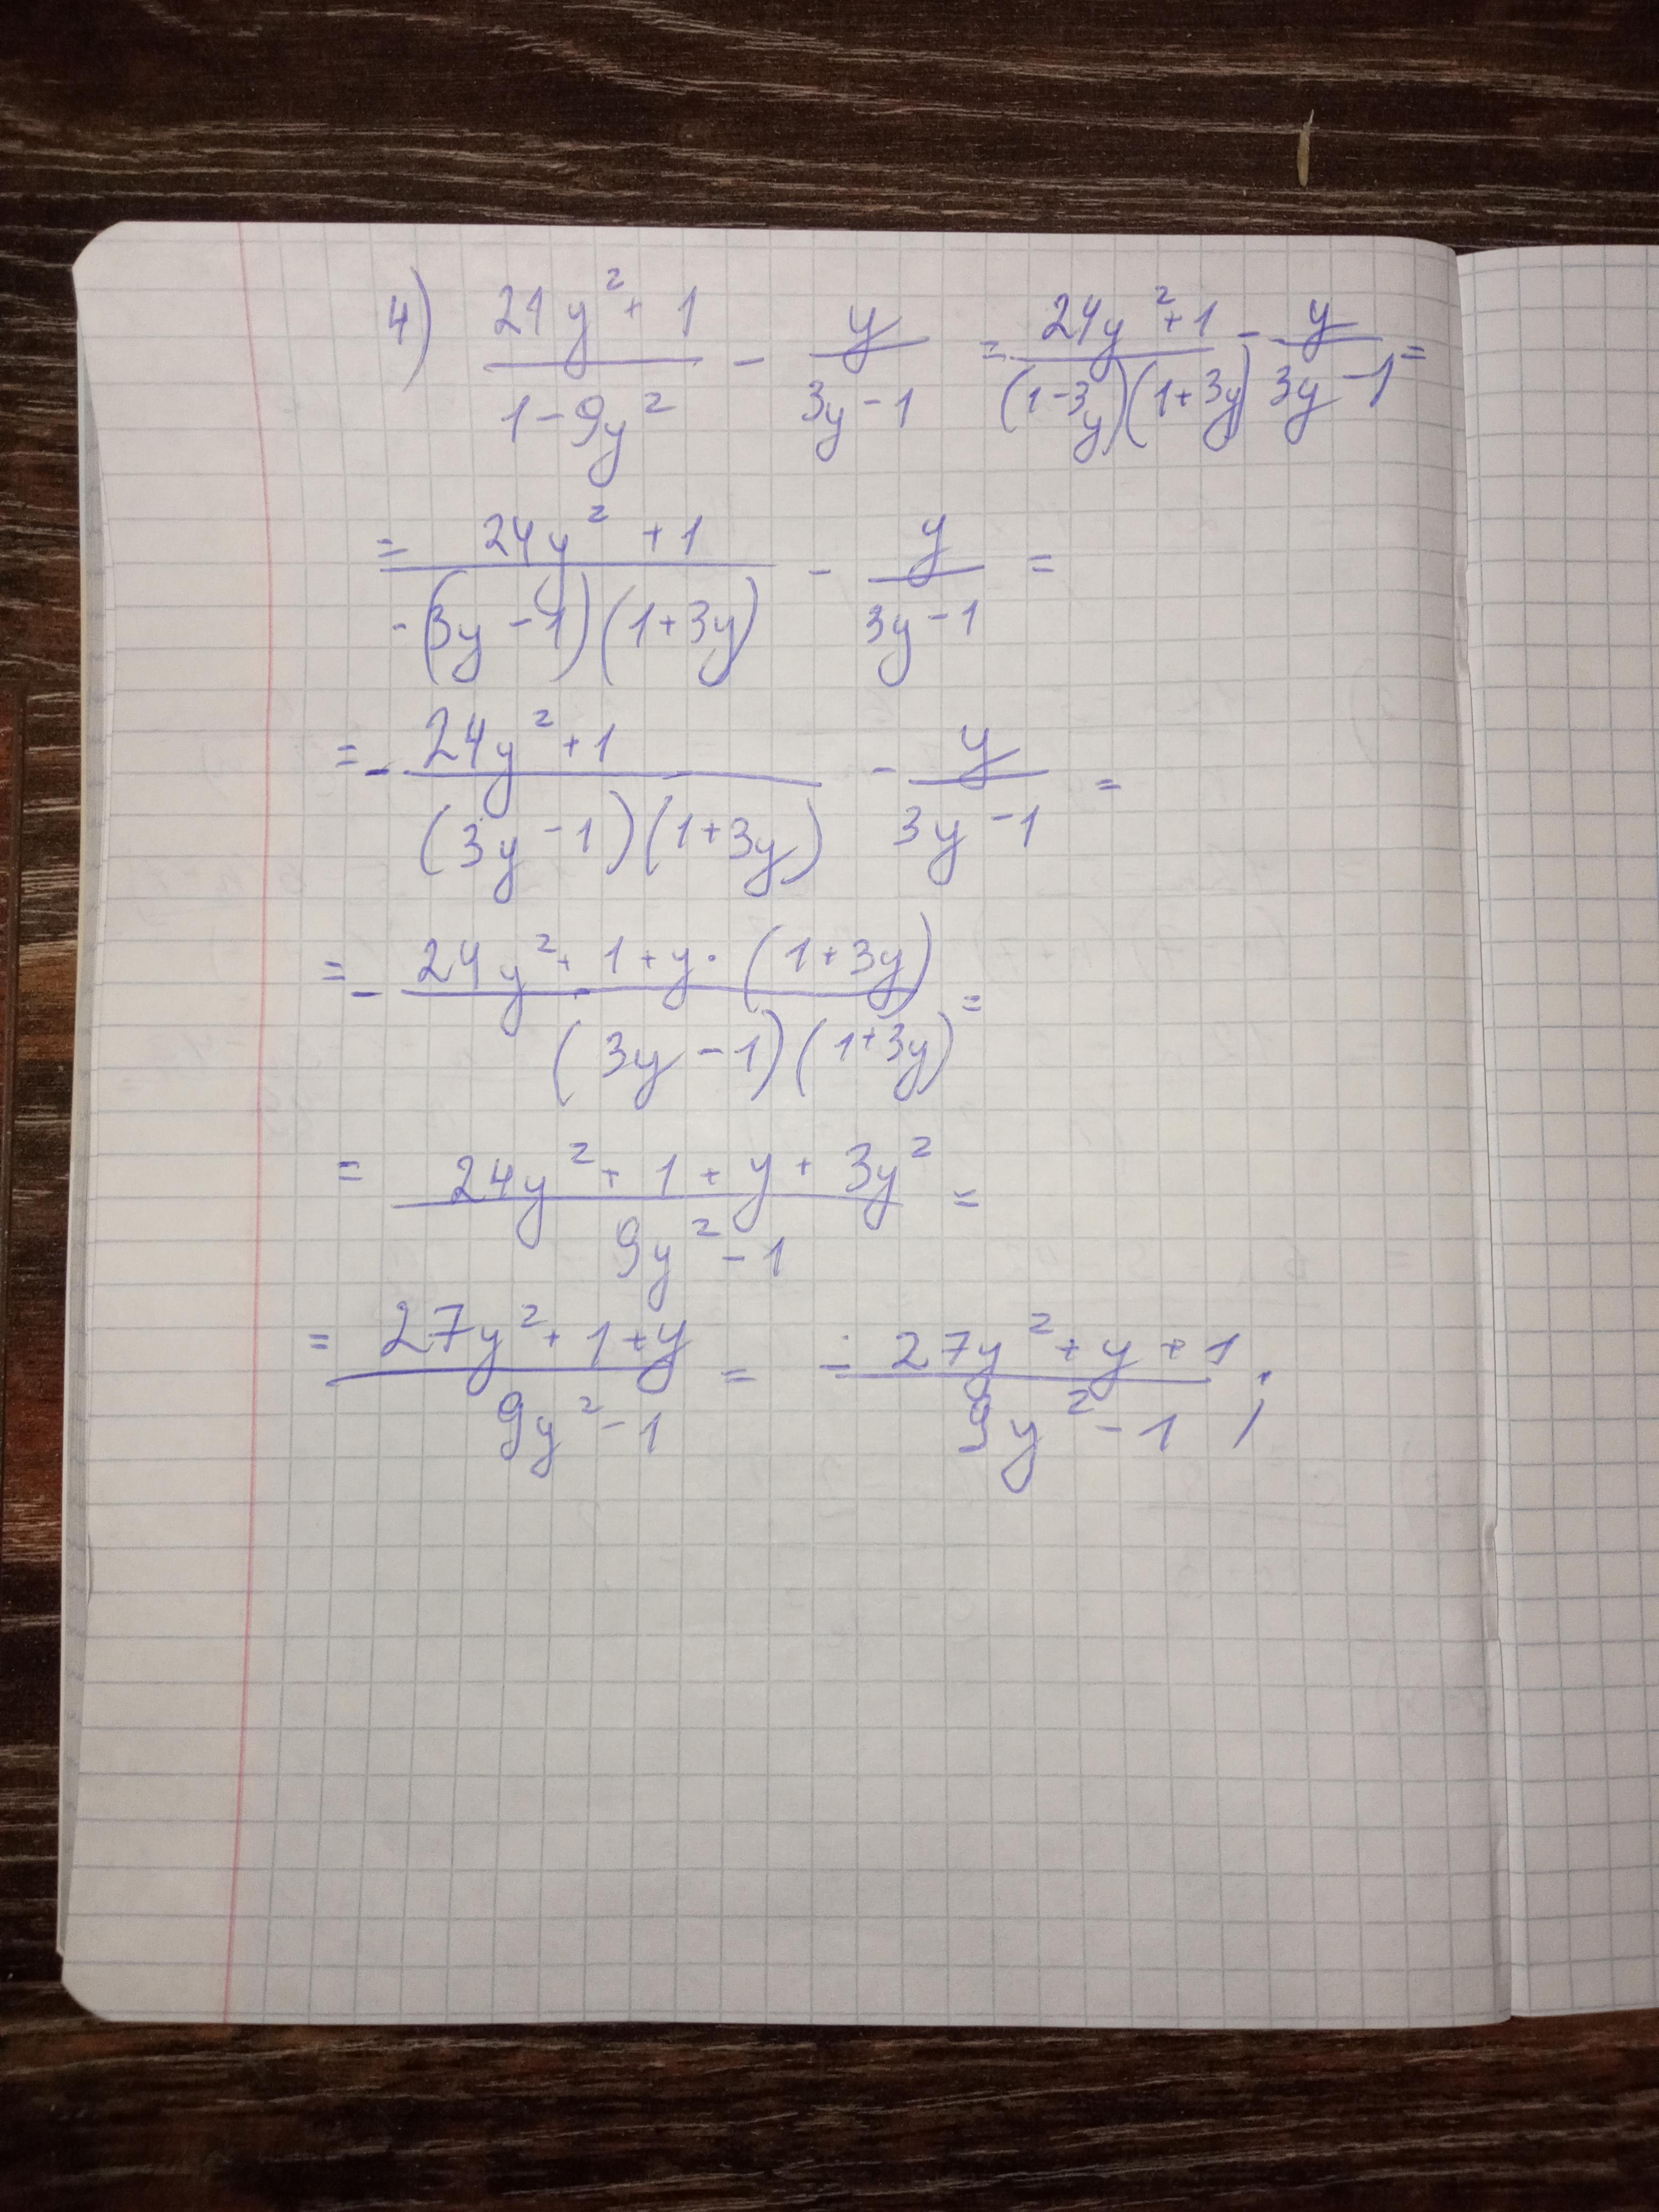 4) (24y² + 1)/(1 - 9y²) - y/(3y - 1) = (24y² + 1)/((1 - 3y)(1 + 3y)) - y/(3y - 1) =
= (24y² + 1)/(-(3y - 1)(1 + 3y)) - y/(3y - 1) =
= - (24y² + 1)/((3y - 1)(1 + 3y)) - y/(3y - 1) =
= - (24y² + 1 + y · (1 + 3y))/((3y - 1)(1 + 3y)) =
= (24y² + 1 + y + 3y²)/(9y² - 1) =
= (27y² + 1 + y)/(9y² - 1) = - (27y² + y + 1)/(9y² - 1);